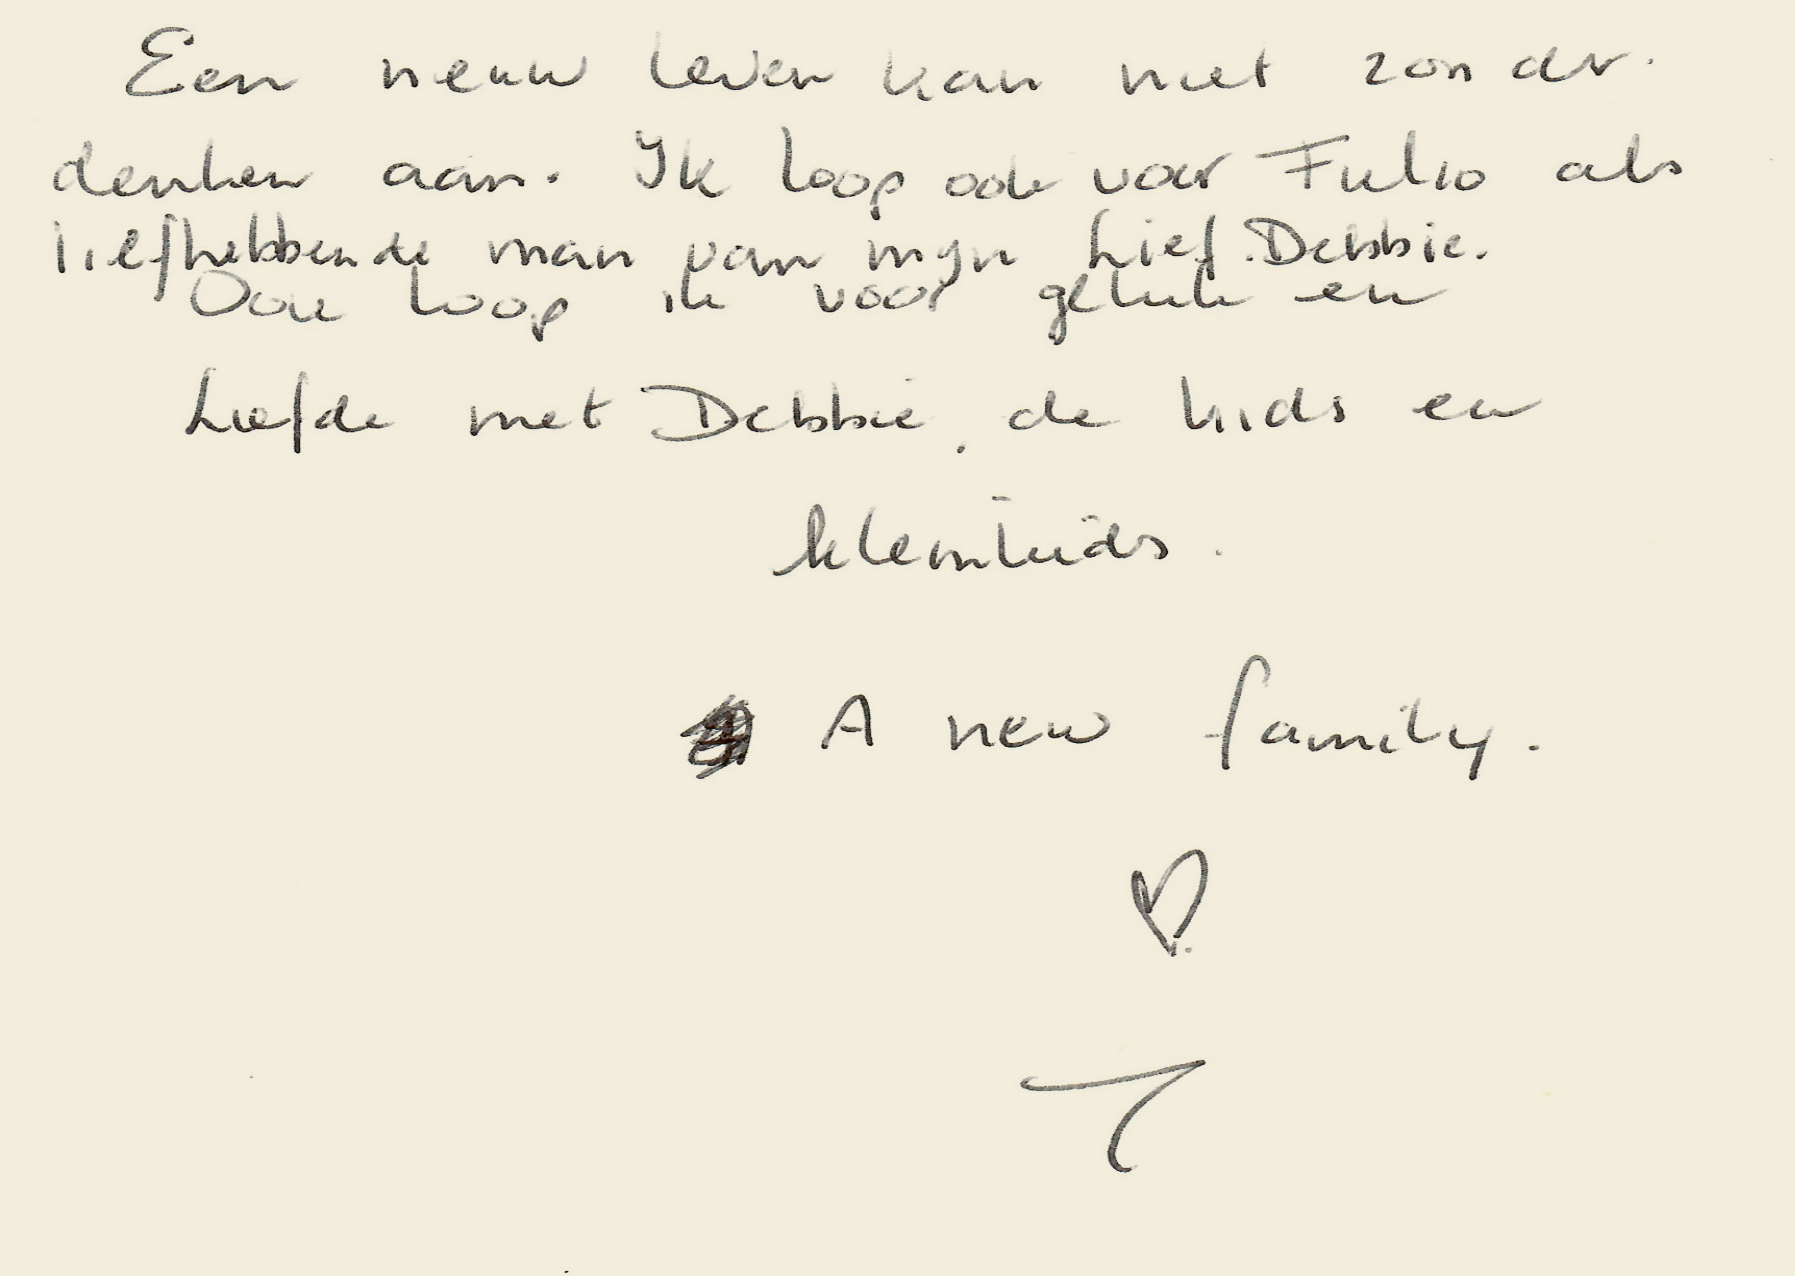 Een nieuw leven kan niet zonder
denken aan. Ik loop ook voor Fulio als
liefhebbende man van mijn Lief Debbie.
Ook loop ik voor geluk en
Liefde met Debbie, de kids en
kleinkids.
A new family.